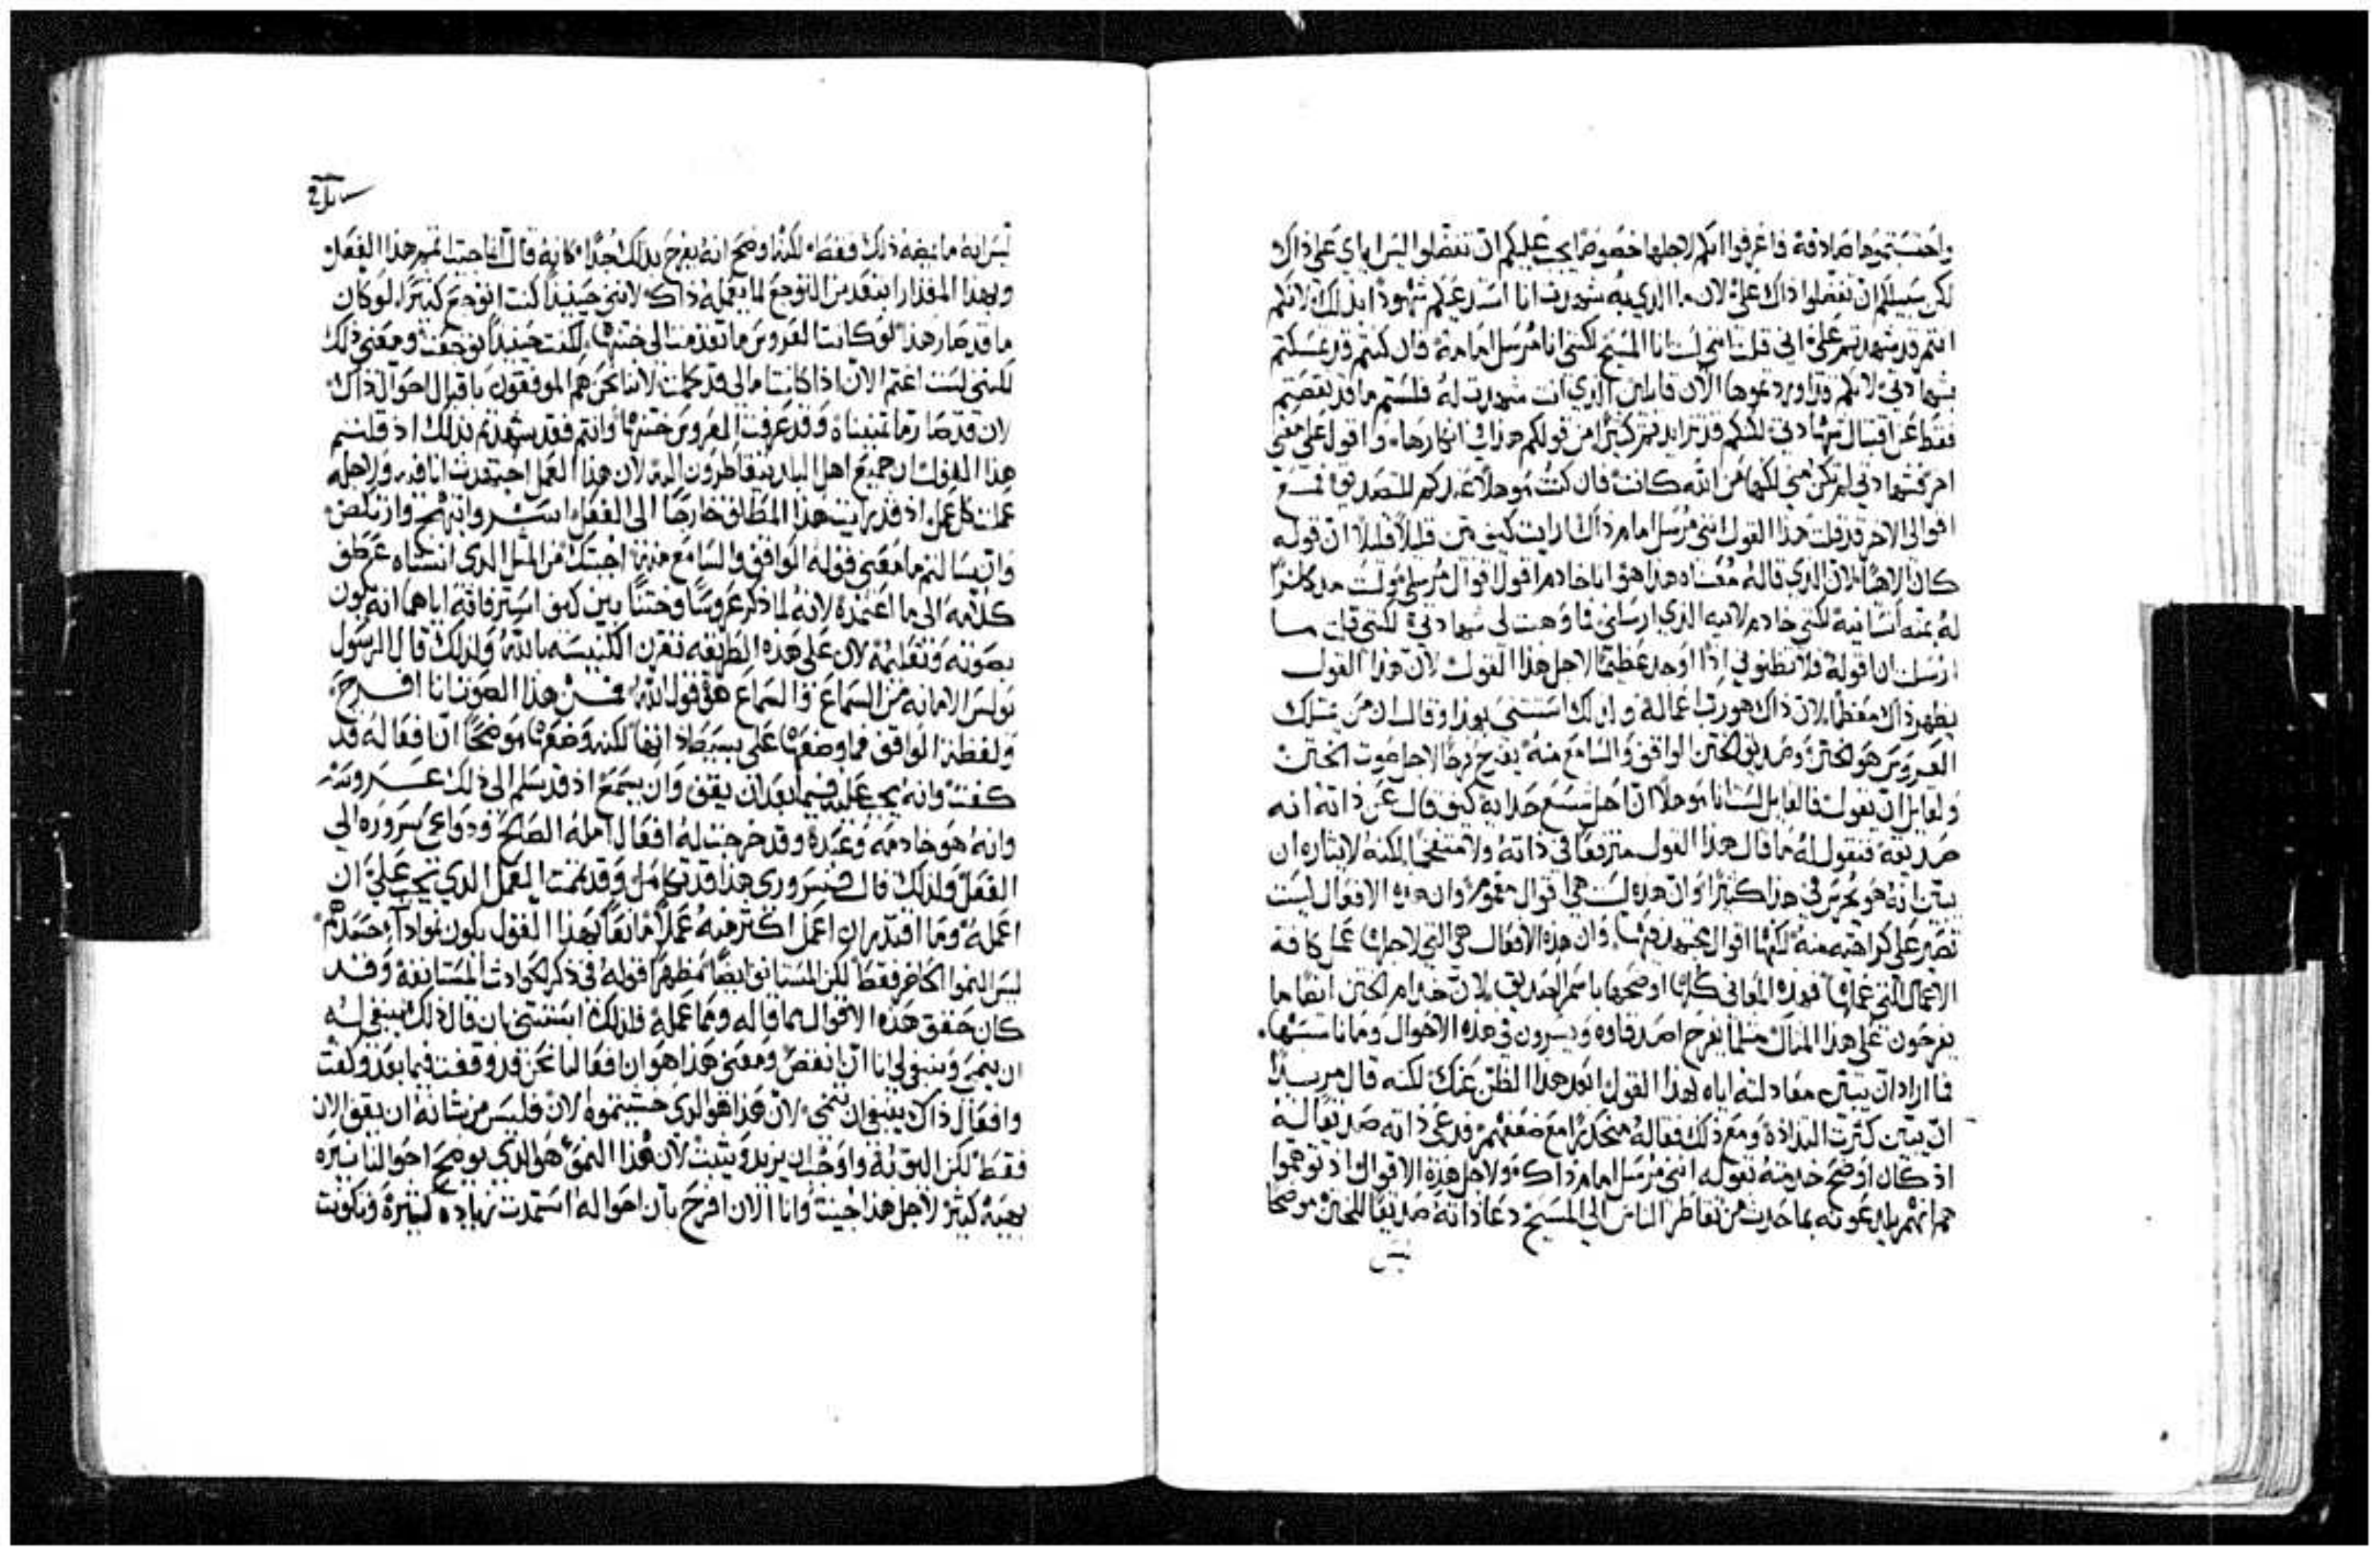 واحتسبتموها صادقة فاعرفوا انكم لاجلها خصوصًا يجب عليكم ان تفضلوا ليس اياي على ذاك
لكن سبيلكم ان تفضلوا ذاك عليّ لان ما الذي به شهدت انا استدعيكم شهودًا بذلك لانكم
انتم قد شهدتم عليّ اني قلت انني لست انا المسيح لكنني انا مرسل امامه فان كنتم قد تمسكتم
بشهادتي لانكم قد اوردتموها الان قايلين الذي انت شهدت له فلستم ما قد نقصتم
فقط عن اقتبال شهادتي لكنكم قد تزايدتم كثيرًا من قولكم هذا في انكارها واقول على معنى
اخر فشهادتي لم تكن هي لكنها من الله كانت فان كنت موهلًا عندكم للتصديق فمع
اقوالي الاخر قد قلت هذا القول انني مرسل امام ذاك ارايت كيف بين قليلًا قليلًا ان قوله
كان الاهيًا لان الذي قاله معناه هذا هو انا خادم اقول اقوال مرسلي
لكني خادم لابيه الذي ارسلني فما وهبت لي شهادتي لكنني قلت ما
ارسلت ان اقوله فلا تظنوني اذًا اوجد عظيمًا لاجل هذا القول لان هذا القول
يظهر ذاك معظمًا لان ذاك هو رب اعماله ولذلك استثنى بهذا وقال ان من يمتلك
العروس هو الختن وصديق الختن الواقف والسامع منه يفرح فرحًا لاجل صوت الختن
ولقايل ان يقول فالقايل لست انا موهلًا ان احل شسع حذايه كيف قال عن ذاته انه
صديقه فنقول له ما قال هذا القول مترفعًا في ذاته ولا متنفجًا لكنه لايثاره ان
يبين انه هو يحرص في هذا كثيرًا وان هذه ليست هي اقوال مغموم وان هذه الافعال ليست
تصير على كراهته منه لكنها اقوال مجتهد فيها وان هذه الافعال هي التي لاجلها عمل كافة
الاعمال التي عملها فهذه المعاني كلها اوضحها باسم الصديق لان خدام الختن ايضًا ما
يفرحون على هذا المثال مثلما يفرح اصدقاوه ويسرون في هذه الاحوال وما ناسبها
فما اراد ان يبين معادلته اياه بهذا القول ابعد هذا الظن عنك لكنه قال مريدًا
ان يبين كثرت التذاذه ومع ذلك فقاله منحدرًا مع ضعفهم فدعى ذاته صديقًا له
اذ كان اوضح خدمته بقوله انني مرسل امام ذاك ولاجل هذه الاقوال اذ توهموا
هم انهم يلدعونه بما حدث من تقاطر الناس الى المسيح دعا ذاته صديقًا للختن موضحًا
ليس
ليس انه ما يمضه ذلك فقط لكنه اوضح انه يفرح بذلك جدًا كانه قال انا جيت اتمم هذا الفعل
وبهذا المقدار ابتعد من التوجع لما يعمله ذاك لانني حينيذ كنت اتوجع كثيرًا لو كان
ما قد صار هذا لو كانت العروس ما تقدمت الى ختنها لكنت حينيذ توجعت ومعنى ذلك
لكنني لست اغتم الان اذا كانت مالي قد كملت لاننا نحن هم الموفقون باقبال احوال ذاك
لان قد صار ما تمنيناه وقد عرفت العروس ختنها وانتم فقد شهدتم بذلك اذ قلتم
هذا القول ان جميع اهل البلد يتقاطرون اليه لان هذا العمل اجتهدت انا فيه ولاجله
عملت كل عمل اذ قد رايت هذا المطلوب خارجًا الى الفعل اسر وابتهج وارتكض
وان سالتم ما معنى قوله الواقف والسامع منه اجبتك من المثل الذي انشاه عطف
كلامه الى ما اعتمده لانه لما ذكر عروسًا وختنًا بين كيف استزفافه اياها انه يكون
بصوته وتعليمه لان على هذه الطريقه تقترن الكنيسه بالله ولذلك قال الرسول
بولس الامانه من السماع والسماع هو قول الله فمن هذا الصوت انا افرح
ولفظة الواقف فما وضعها على بسيط ذاتها لكنه وضعها موضحًا ان افعاله قد
كفت وانه يجب عليه فيما بعد ان يقف وان يسمع اذ قد سلم الى ذلك عروسه
وانه هو خادمه وعبده وقد خرجت له افعال امله الصالح ودواعي سروره الى
الفعل ولذلك قال فسروري هذا قد تكامل وقد تممت العمل الذي يجب علي ان
اعمله وما اقتدر ان اعمل اكثر منه عملًا نافعًا بهذا القول
ليس النمو الحاضر فقط لكن المستانف ايضًا مظهرًا قوله في ذكر الحوادث المستانفة وقد
كان حقق هذه الاقوال بما قاله ومما عمله فلذلك استثنى بان قال ذلك ينبغي له
ان ينمي وينبغي لي انا ان انقص ومعنى هذا هو ان افعالنا نحن قد وقفت فيما بعد وكفت
وافعال ذاك ينبغي ان تنمي لان هذا هو الذي خشيتموه الان فليس من شانه ان يقف الان
فقط لكن اليق به واوجب ان يزيد ويثبت لان هذا النمو هو الذي يوضح احوالنا نيره
بهيه كثيرًا لاجل هذا جيت وانا الان افرح بان احواله استمدت زياده كثيرة وتكونت